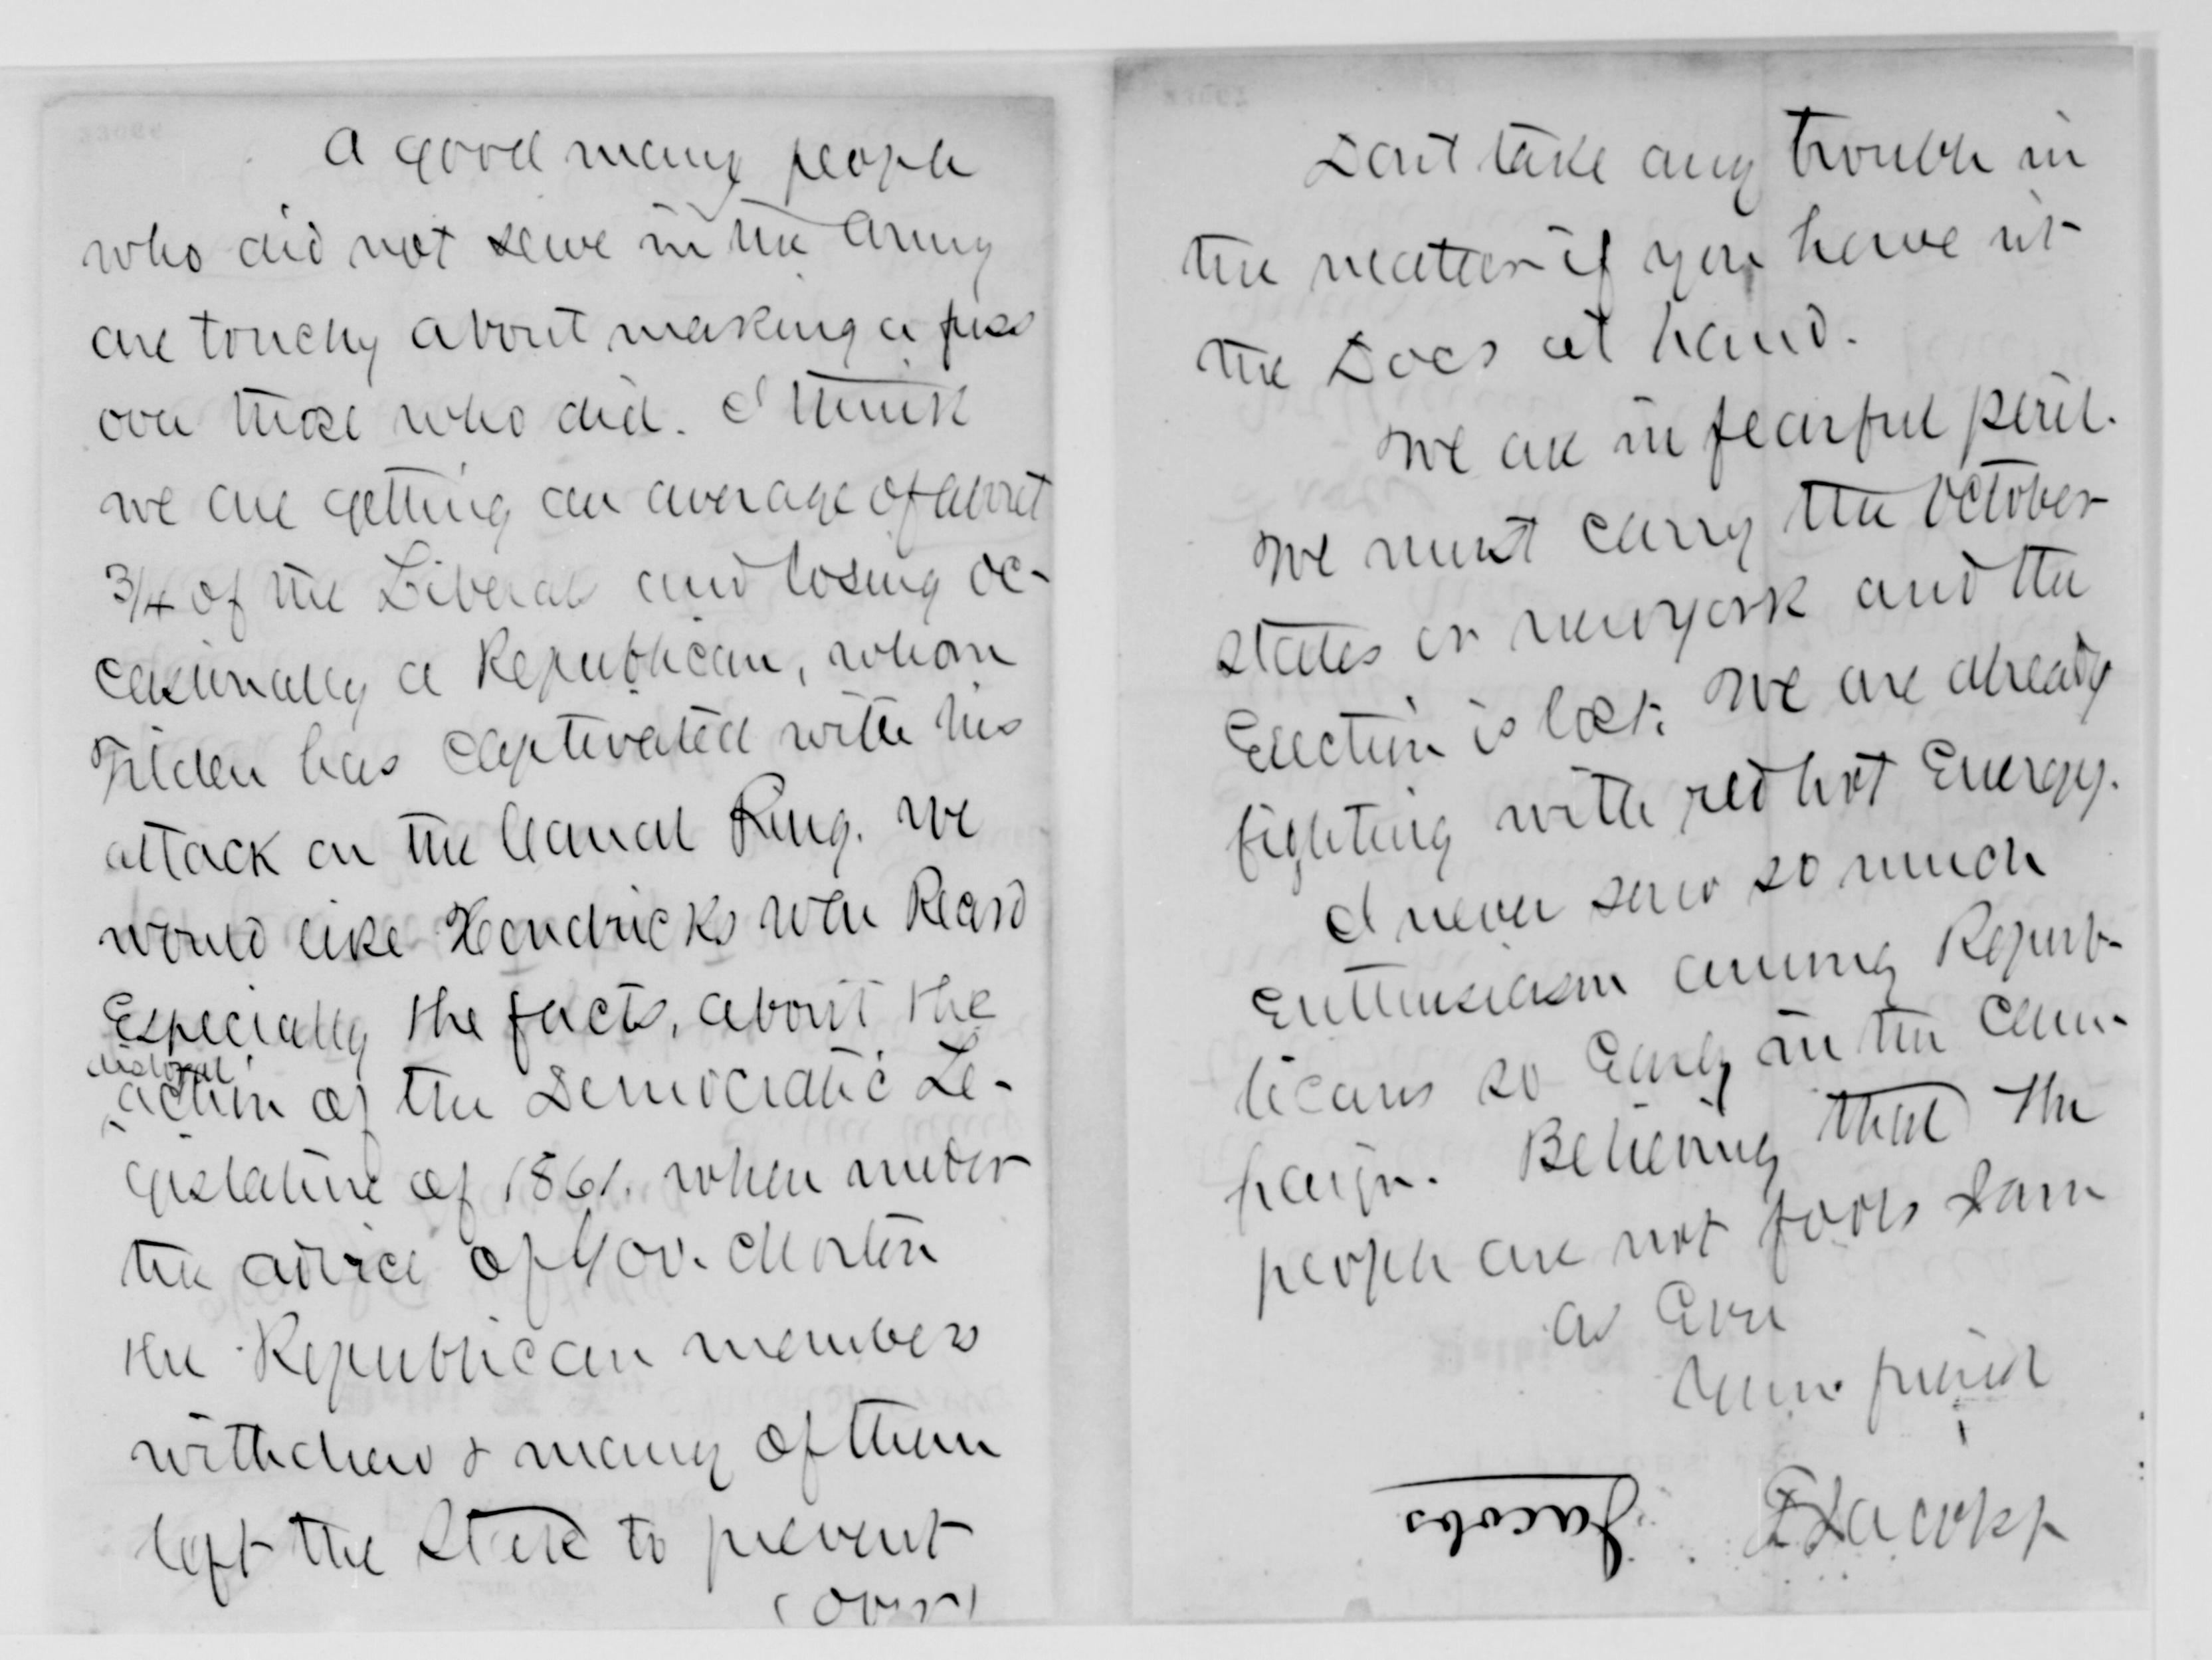 A good many people
who did not serve in the Army
are touchy about making a fuss
over those who did. I think
we are getting an average of about
3/4 of the Liberals and losing oc-
casionally a Republican, whom
Tilden has captivated with his
attack on the Canal Ring. We
would like Hendricks War Record
Especially the facts, about the
disloyal
action of the Democratic Le-
gislature of 1861. when under
the advice of Gov. Morton
the Republican members
withdrew & many of them
left the State to prevent
(over)
Dont take any trouble in
the matter if you have nt
the Docs at hand.
We are in fearful peril.
We must carry the October
states or New York and the
Election is lost. We are already
fighting with red hot Energy.
I never saw so much
Enthusiasm among Repub-
licans so Early in the Cam-
paign. Believing that the
people are not fools I am
as Ever
Your friend
Jacobs